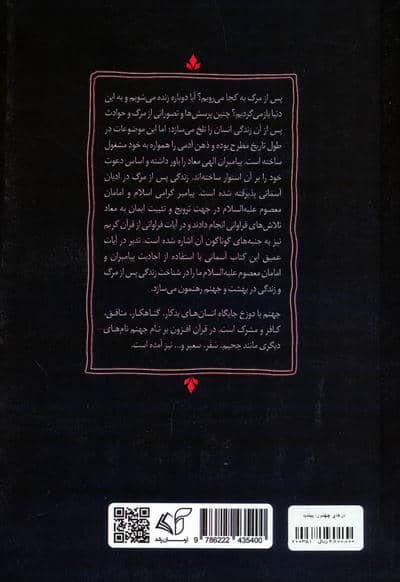 پس از مرگ به کجا می‌رویم؟ آیا دوباره زنده می‌شویم و به این
دنیا بازمی‌گردیم؟ چنین پرسش‌ها و تصوراتی از مرگ و حوادث
پس از آن زندگی انسان را تلخ می‌سازد؛ اما این موضوعات در
طول تاریخ مطرح بوده و ذهن آدمی را همواره به خود مشغول
ساخته است. پیامبران الهی معاد را باور داشته و اساس دعوت
خود را بر آن استوار ساخته‌اند. زندگی پس از مرگ در ادیان
آسمانی پذیرفته شده است. پیامبر گرامی اسلام و امامان
معصوم علیه‌السلام در جهت ترویج و تثبیت ایمان به معاد
تلاش‌های فراوانی انجام دادند و در آیات فراوانی از قرآن کریم
نیز به جنبه‌های گوناگون آن اشاره شده است. تدبر در آیات
عمیق این کتاب آسمانی با استفاده از احادیث پیامبران و
امامان معصوم علیه‌السلام ما را در شناخت زندگی پس از مرگ و
زندگی در بهشت و جهنم رهنمون می‌سازد.
جهنم یا دوزخ جایگاه انسان‌های بدکار، گناهکار، منافق،
کافر و مشرک است. در قرآن افزون بر نام جهنم نام‌های
دیگری مانند جحیم، سقر، سعیر و... نیز آمده است.
9 786222 435400